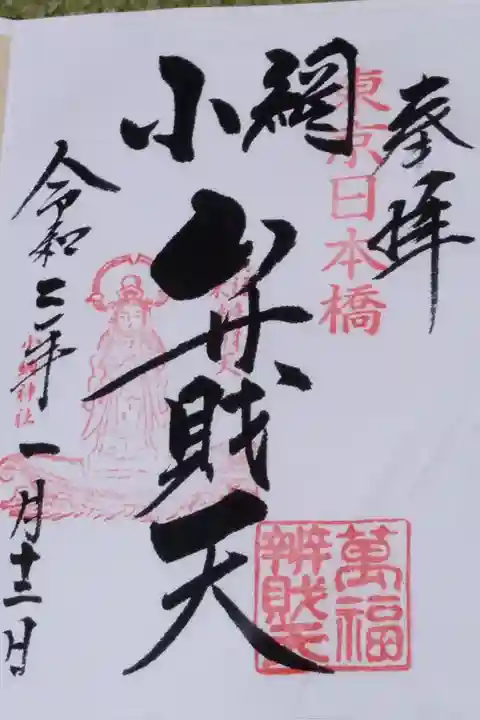 奉拝
東京日本橋
小網
弁財天
萬福
辨財天
小網神社
令和二年一月十三日